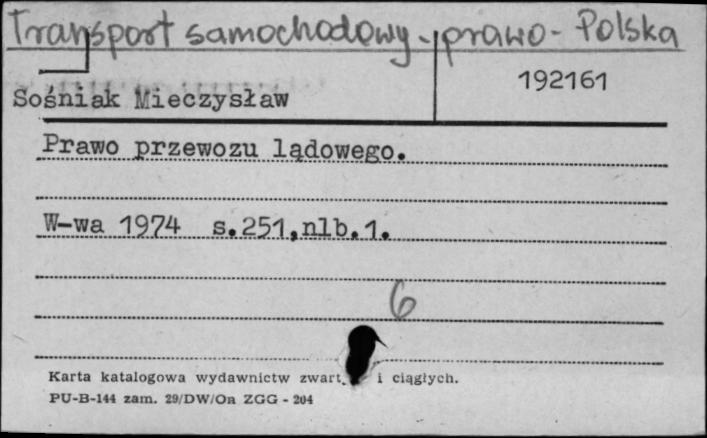 Transport samochodowy - prawo - Polska
192161
Sośniak Mieczysław
Prawo przewozu lądowego.
W-wa 1974 s.251,nlb.1.
6
Karta katalogowa wydawnictw zwart. i ciągłych.
PU-B-144 zam. 29/DW/Oa ZGG - 204